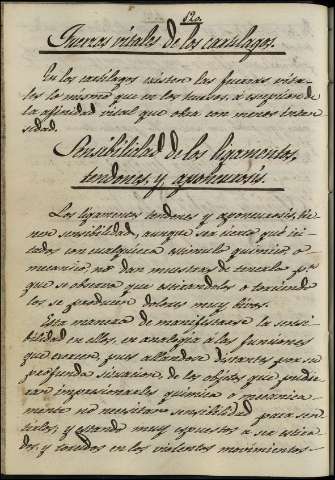 120.
Fuerzas vitales de los cartilagos.
En los cartilagos existen las fuerzas vita-
les lo mismo que en los huesos, á excepcion de
la afinidad vital que obra con menos inten-
sidad.
Sensibilidad de los ligamentos,
tendones, y aponeurosis.
Los ligamentos tendones y aponeurosis, tie-
nen sensibilidad, aunque sea cierto que irri-
tados con cualquiera estimulo quimico, o
mecanico no dan muestras de tenerla, p.r
que se observa que estirandolos o torciendo
los se producen dolores muy vivos.
Esta manera de manifestarse la sensi-
bilidad en ellos, es analoga á las funciones
que exercen, pues allandose distantes por su
profunda situacion de los objetos que pudie-
ran impresionarles quimica o mecanica-
mente no necesitan sensibilidad para sen-
tirlos, y estando muy expuestos a ser estira-
dos, y torcidos en los violentos movimientos